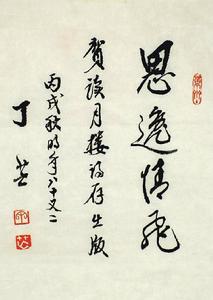 思逸情飛
賀談月楼詩存出版
丙戌秋時年八十又二
丁芒